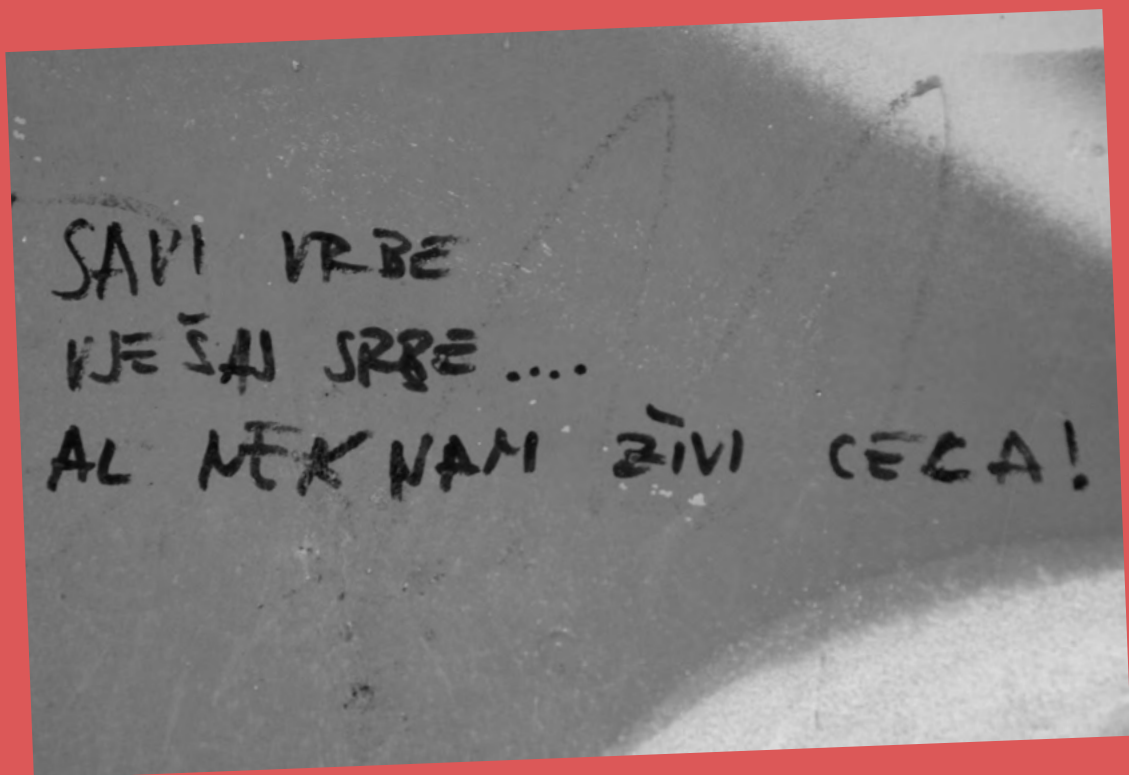 SAVI VRBE
VJEŠAJ SRBE....
AL NEK NAM ŽIVI CECA!